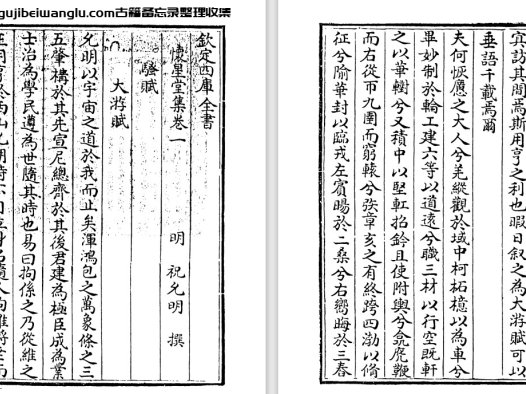 gujibeiwanglu.com古籍备忘录整理收集
欽定四庫全書
懷星堂集卷一
明 祝允明 撰
騷賦
大游賦
允明以宇宙之道於我而止矣渾鴻包之萬象條之三
五肇構於其先宣尼總齊於其後君建為極臣成為業
士治為學民遵為世隨其時也易曰拘係之乃從維之
王用亨於西山允明
宜訪其間焉斯用亨之利也暇日叙之為大游賦可以
垂語千載焉爾
夫何恢廓之大人兮羌縱觀於域中柯柘檍以為車兮
畢妙制於輪工建六等以道遠兮職三材以行空既軒
之以華輈兮又積中以堅軏抬鈴且使附輿兮兗麂鞭
而右從帀九圍而窮轅兮俟章亥之有終跨四渤以脩
征兮隃華封以臨戎左賓暘於二桑兮右嚮晦於三春